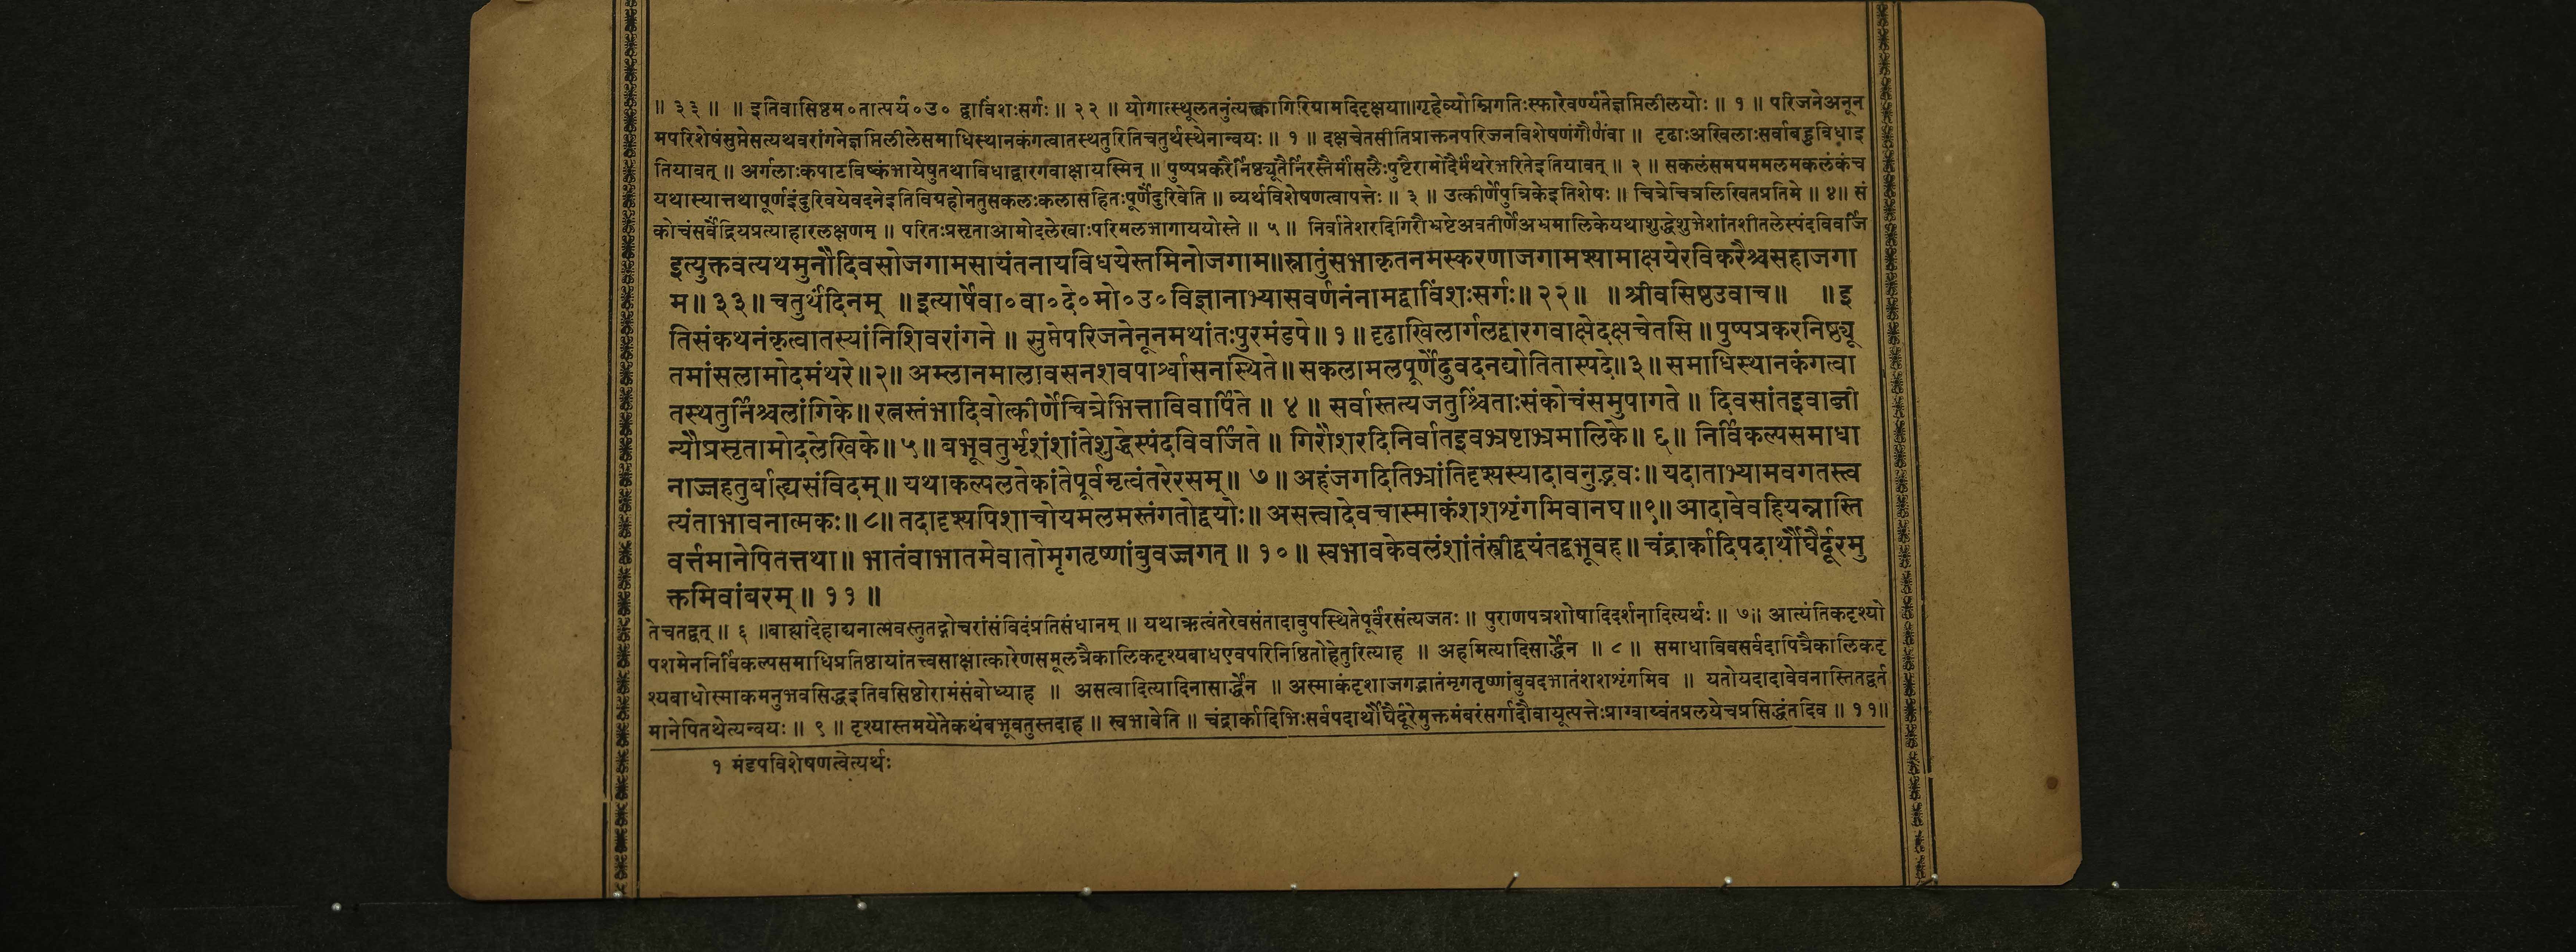 ॥ ३३ ॥ ॥ इतिवासिष्ठम०तात्पर्य०उ० द्वाविंशःसर्गः ॥ २२ ॥ योगात्स्थूलतनुंत्यक्त्वागिरियामदिदृक्षया॥गृहेव्योम्निगतिःस्फारैवर्ण्यतेज्ञप्तिलीलयोः ॥ १ ॥ परिजनेअनून
मपरिशेषंसुप्तेसत्यथवरांगनेज्ञप्तिलीलेसमाधिस्थानकंगत्वातस्थतुरितिचतुर्थस्थेनान्वयः ॥ १ ॥ दक्षचेतसीतिप्राक्तनपरिजनविशेषणंगौणंवा ॥ दृढाःअखिलाःसर्वाबहुविधाइ
तियावत् ॥ अर्गलाःकपाटविष्कंभायेषुतथाविधाद्वारगवाक्षायस्मिन् ॥ पुष्पप्रकरैर्निष्ठ्यूतैर्निरस्तैर्मांसलैःपुष्टैरामोदैर्मंथरेभरितेइतियावत् ॥ २ ॥ सकलंसमग्रममलमकलंकंच
यथास्यात्तथापूर्णइंदुरिवयेवदनेइतिविग्रहोनतुसकलःकलासहितःपूर्णेंदुरिवेति ॥ व्यर्थविशेषणत्वापत्तेः ॥ ३ ॥ उत्कीर्णेपुत्रिकेइतिशेषः ॥ चित्रेचित्रलिखितप्रतिमे ॥ ४॥ सं
कोचंसर्वेंद्रियप्रत्याहारलक्षणम् ॥ परितःप्रसृताआमोदलेखाःपरिमलभागाययोस्ते ॥ ५ ॥ निर्वातेशरदिगिरौभ्रष्टेअवतीर्णेअभ्रमालिकेयथाशुद्धेशुभ्रेशांतशीतलेस्पंदविवर्जि
इत्युक्तवत्यथमुनौदिवसोजगामसायंतनायविधयेस्तमिनोजगाम॥स्नातुंसभाकृतनमस्करणाजगामश्यामाक्षयेरविकरैश्चसहाजगा
म॥ ३३॥ चतुर्थंदिनम् ॥ इत्यार्षेवा०वा०दे०मो०उ०विज्ञानाभ्यासवर्णनंनामद्वाविंशःसर्गः॥ २२॥ ॥ श्रीवसिष्ठउवाच॥ ॥ इ
तिसंकथनंकृत्वातस्यांनिशिवरांगने ॥ सुप्तेपरिजनेनूनमथांतःपुरमंडपे॥ १ ॥ दृढाखिलार्गलद्वारगवाक्षेदक्षचेतसि ॥ पुष्पप्रकरनिष्ठ्यू
तमांसलामोदमंथरे॥२॥ अम्लानमालावसनशवपार्श्वासनस्थिते॥ सकलामलपूर्णेंदुवदनद्योतितास्पदे॥३॥ समाधिस्थानकंगत्वा
तस्थतुर्निश्चलांगिके॥ रत्नस्तंभादिवोत्कीर्णेचित्रेभित्ताविवार्पिते ॥ ४ ॥ सर्वास्तत्यजतुश्चिंताःसंकोचंसमुपागते ॥ दिवसांतइवाब्जि
न्यौप्रसृतामोदलेखिके॥ ५॥ बभूवतुर्भृशंशांतेशुद्धेस्पंदविवर्जिते ॥ गिरौशरदिनिर्वातइवभ्रष्टाभ्रमालिके॥ ६॥ निर्विकल्पसमाधा
नाज्जहतुर्बाह्यसंविदम्॥ यथाकल्पलतेकांतेपूर्वमृत्वंतरेरसम्॥ ७॥ अहंजगदितिभ्रांतिदृश्यस्यादावनुद्भवः॥ यदाताभ्यामवगतस्त्व
त्यंताभावनात्मकः॥ ८॥ तदादृश्यपिशाचोयमलमस्तंगतोद्वयोः॥ असत्त्वादेवचास्माकंशशशृंगमिवानघ॥९॥ आदावेवहियन्नास्ति
वर्त्तमानेपितत्तथा॥ भातंवाभातमेवातोमृगतृष्णांबुवज्जगत् ॥ १० ॥ स्वभावकेवलंशांतंस्त्रीद्वयंतद्बभूवह॥ चंद्रार्कादिपदार्थौघैर्दूरमु
क्तमिवांबरम् ॥ ११ ॥
तेचतद्वत् ॥ ६ ॥बाह्यांदेहाद्यनात्मवस्तुतद्गोचरांसंविदंप्रतिसंधानम् ॥ यथाऋत्वंतरेवसंतादावुपस्थितेपूर्वरसंत्यजतः ॥ पुराणपत्रशोषादिदर्शनादित्यर्थः ॥ ७॥ आत्यंतिकदृश्यो
पशमेननिर्विकल्पसमाधिप्रतिष्ठायांतत्त्वसाक्षात्कारेणसमूलत्रैकालिकदृश्यबाधएवपरिनिष्ठितोहेतुरित्याह ॥ अहमित्यादिसार्द्धेन ॥ ८ ॥ समाधाविवसर्वदापित्रैकालिकदृ
श्यबाधोस्माकमनुभवसिद्धइतिवसिष्ठोरामंसंबोध्याह ॥ असत्वादित्यादिनासार्द्धेन ॥ अस्माकंदृशाजगद्भातंमृगतृष्णांबुवदभातंशशशृंगमिव ॥ यतोयदादावेवनास्तितद्वर्त
मानेपितथेत्यन्वयः ॥ ९ ॥ दृश्यास्तमयेतेकथंबभूवतुस्तदाह ॥ स्वभावेति ॥ चंद्रार्कादिभिःसर्वपदार्थौघैर्दूरेमुक्तमंबरंसर्गादौवायूत्पत्तेःप्राग्वाय्वंतप्रलयेचप्रसिद्धंतदिव ॥ ११॥
१ मंडपविशेषणत्वेत्यर्थः